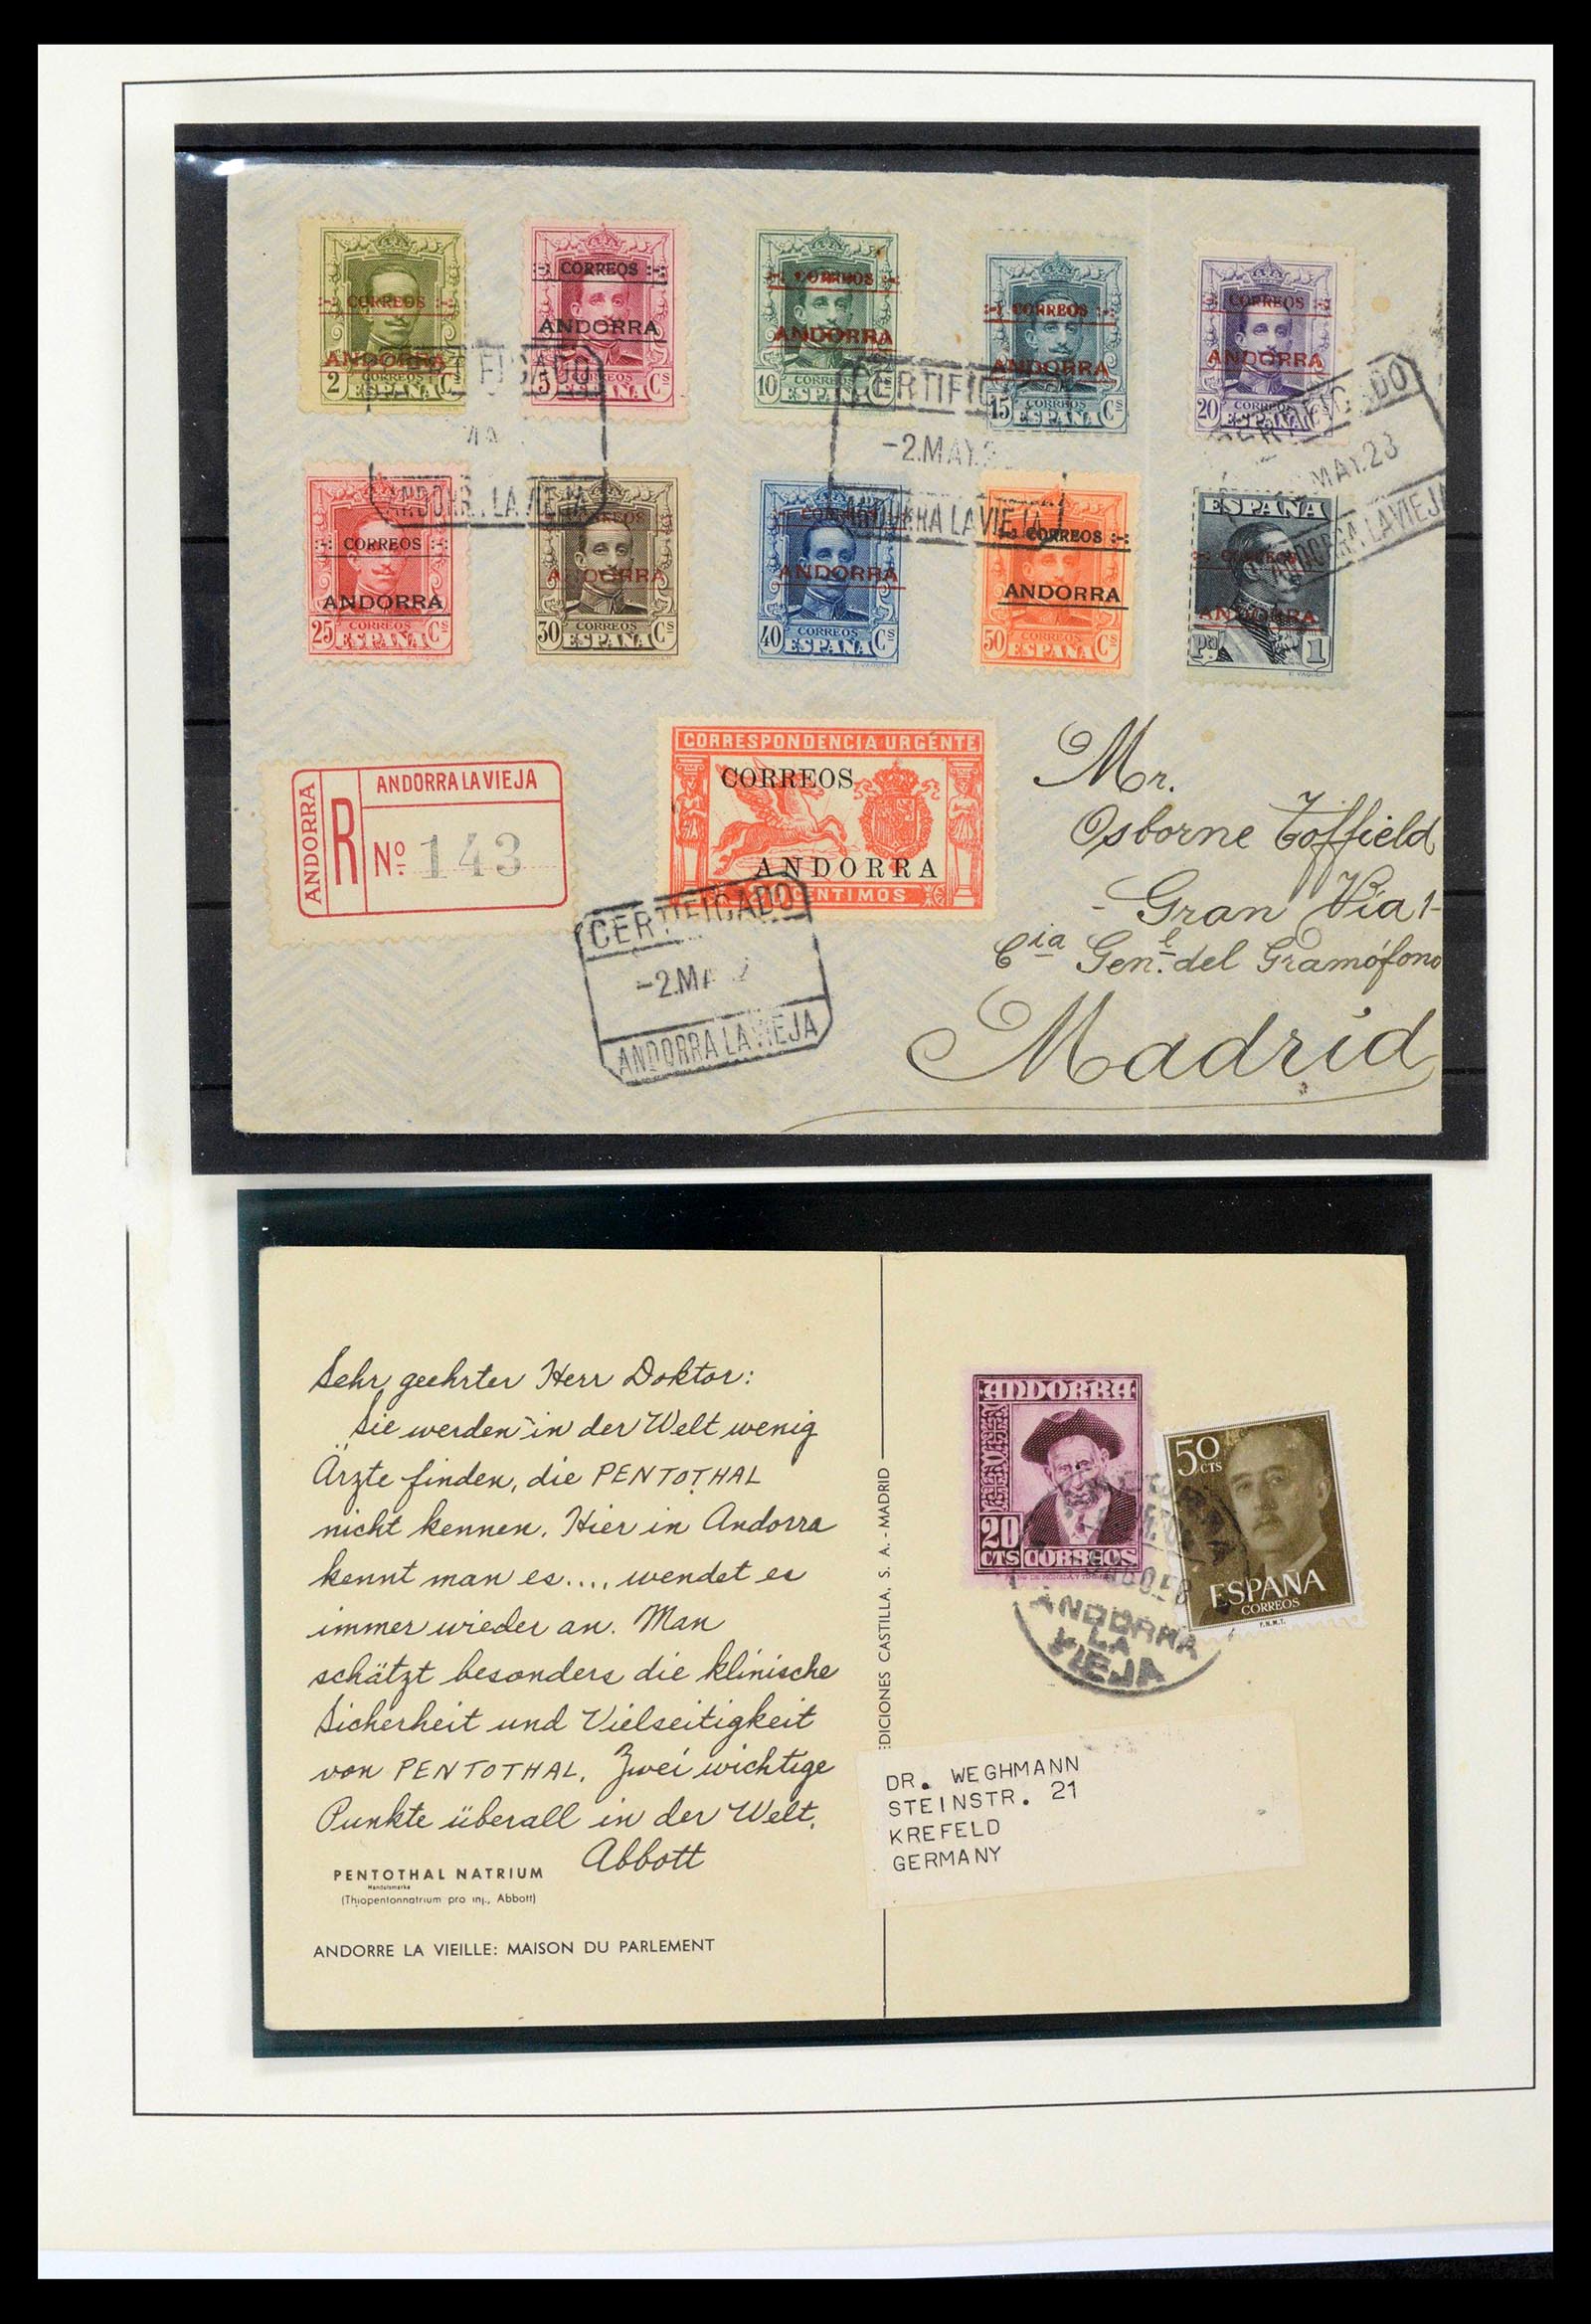 CORREOS
ANDORRA
2 CORREOS Cs
ESPAÑA
:-: CORREOS :-:
ANDORRA
5 Cs
ESPAÑA
CORREOS
ANDORRA
10 CORREOS Cs
ESPAÑA
:-: CORREOS :-:
ANDORRA
15 CORREOS Cs
ESPAÑA
CORREOS :-:
ANDORRA
20 CORREOS Cs
ESPAÑA
CERTIFICADO
-2.MAY.
CERTIFICADO
MAY.23
ANDORRA LA VIEJA
ANDORRA LA VIEJA
ANDORRA LA VIEJA
:-: CORREOS :-:
ANDORRA
25 CORREOS Cs
ESPAÑA
CORREOS
ANDORRA
30 CORREOS Cs
ESPAÑA
CORREOS
ANDORRA
40 CORREOS Cs
ESPAÑA
CORREOS :-:
ANDORRA
50 CORREOS Cs
ESPAÑA
ESPAÑA
CORREOS
ANDORRA
Pta 1
ANDORRA
R
ANDORRA LA VIEJA
No 143
CORRESPONDENCIA URGENTE
CORREOS
ANDORRA
CENTIMOS
CERTIFICADO
-2.MA
ANDORRA LA VIEJA
Mr.
Osborne Toffield
- Gran Vía 1-
Cia Genl. del Gramófono
Madrid
Sehr geehrter Herr Doktor:
Sie werden in der Welt wenig
Ärzte finden, die PENTOTHAL
nicht kennen. Hier in Andorra
kennt man es...., wendet es
immer wieder an. Man
schätzt besonders die klinische
Sicherheit und Vielseitigkeit
von PENTOTHAL. Zwei wichtige
Punkte überall in der Welt.
Abbott
PENTOTHAL NATRIUM
Handelsmarke
(Thiopentonnatrium pro inj., Abbott)
ANDORRE LA VIEILLE: MAISON DU PARLEMENT
EDICIONES CASTILLA, S. A. - MADRID
ANDORRA
20
CTS CORREOS
50
CTS
ESPAÑA
CORREOS
F.N.M.T.
ANDORRA
LA
VIEJA
DR. WEGHMANN
STEINSTR. 21
KREFELD
GERMANY